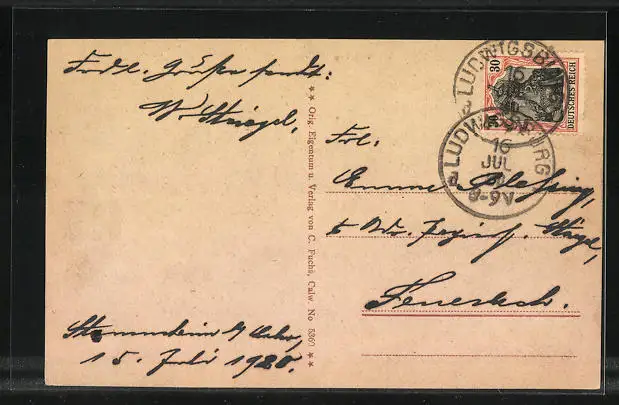 Frdl. Grüße sendet:
W. Stiegel,
** Orig. Eigentum u. Verlag von C. Fuchs, Calw. No 5360 **
Stammheim b/ Calw,
15. Juli 1920.
LUDWIGSBURG
16
30
30
DEUTSCHES REICH
LUDWIGSBURG
16
JUL
8-9V
Frl.
Emma Blessing,
Feuerbach.